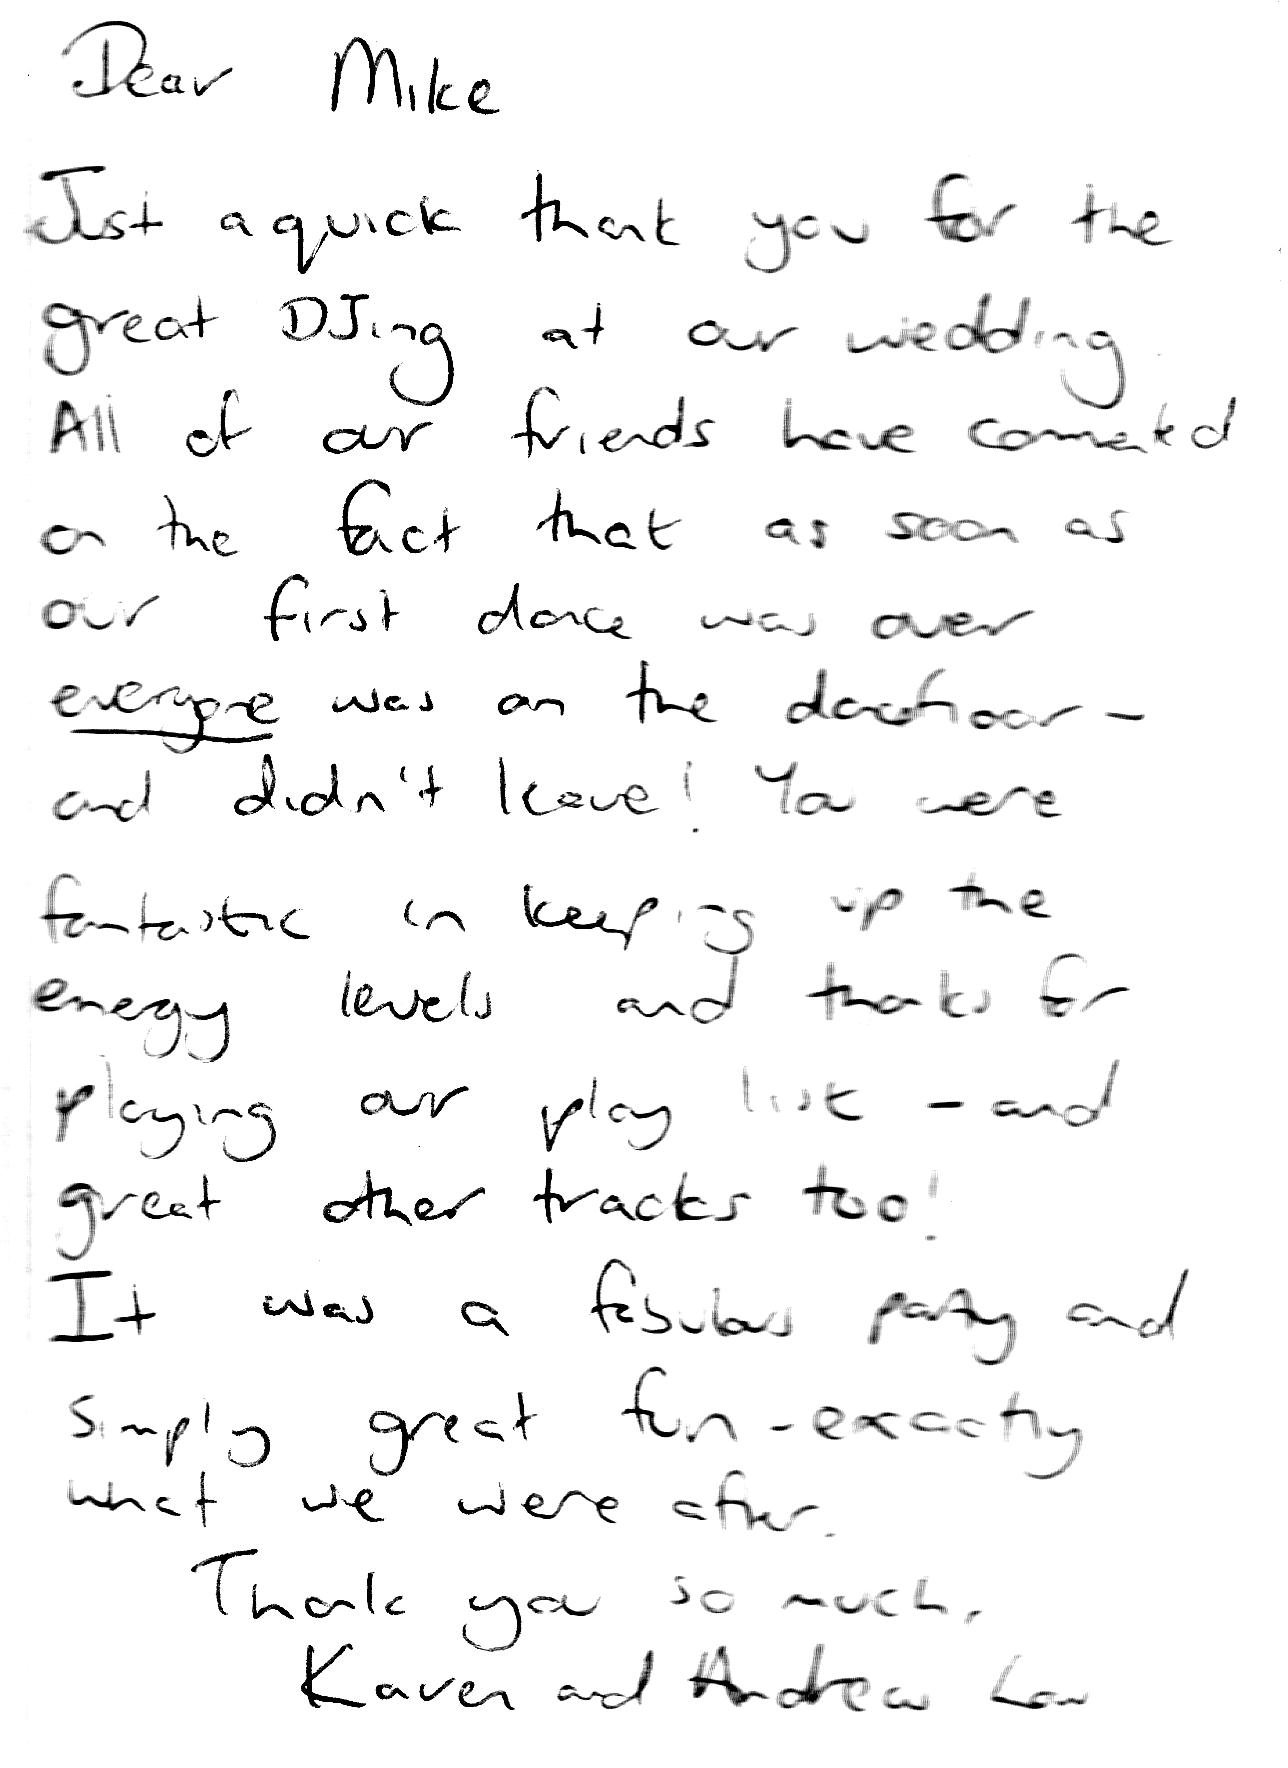 Dear Mike
Just a quick thank you for the
great DJing at our wedding.
All of our friends have commented
on the fact that as soon as
our first dance was over
everyone was on the dancefloor -
and didn't leave! You were
fantastic in keeping up the
energy levels and thanks for
playing our play list - and
great other tracks too!
It was a fabulous party and
simply great fun - exactly
what we were after.
Thank you so much,
Karen and Andrew